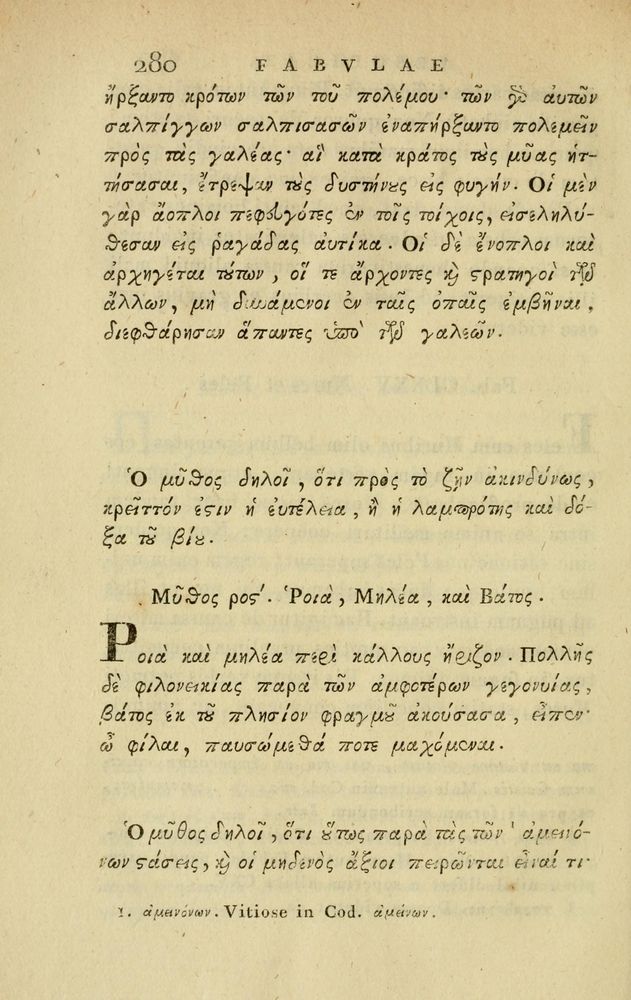 280 FABVLAE
ἤρξαντο κρότων τῶν τοῦ πολέμου· τῶν δὲ αὐτῶν
σαλπίγγων σαλπισασῶν ἐναπήρξαντο πολεμεῖν
πρὸς τὰς γαλέας· αἳ κατὰ κράτος τοὺς μῦας ἡτ-
τήσασαι, ἔτρεψαν τοὺς δυστήνους εἰς φυγήν. Οἱ μὲν
γὰρ ἄοπλοι πεφευγότες ἐν τοῖς τοίχοις, εἰσεληλύ-
θεσαν εἰς ῥαγάδας αὐτίκα. Οἱ δὲ ἔνοπλοι καὶ
ἀρχηγέται τούτων, οἵ τε ἄρχοντες καὶ στρατηγοὶ τῶν
ἄλλων, μὴ δυνάμενοι ἐν ταῖς ὀπαῖς ἐμβῆναι,
διεφθάρησαν ἅπαντες ὑπὸ τῶν γαλεῶν.
Ὁ μῦθος δηλοῖ, ὅτι πρὸς τὸ ζῇν ἀκινδύνως,
κρεῖττόν ἐστιν ἡ εὐτέλεια, ἢ ἡ λαμπρότης καὶ δό-
ξα τοῦ βίου.
Μῦθος ροϛʹ. Ῥοιὰ, Μηλέα, καὶ Βάτος.
Ῥοιὰ καὶ μηλέα περὶ κάλλους ἤριζον. Πολλῆς
δὲ φιλονεικίας παρὰ τῶν ἀμφοτέρων γεγονυίας,
βάτος ἐκ τοῦ πλησίον φραγμοῦ ἀκούσασα, εἶπεν·
ὦ φίλαι, παυσώμεθά ποτε μαχόμεναι.
Ὁ μῦθος δηλοῖ, ὅτι οὕτως παρὰ τὰς τῶν ¹ ἀμεινό-
νων στάσεις, καὶ οἱ μηδενὸς ἄξιοι πειρῶνται εἶναί τι·
1. ἀμεινόνων. Vitiose in Cod. ἀμείνων.